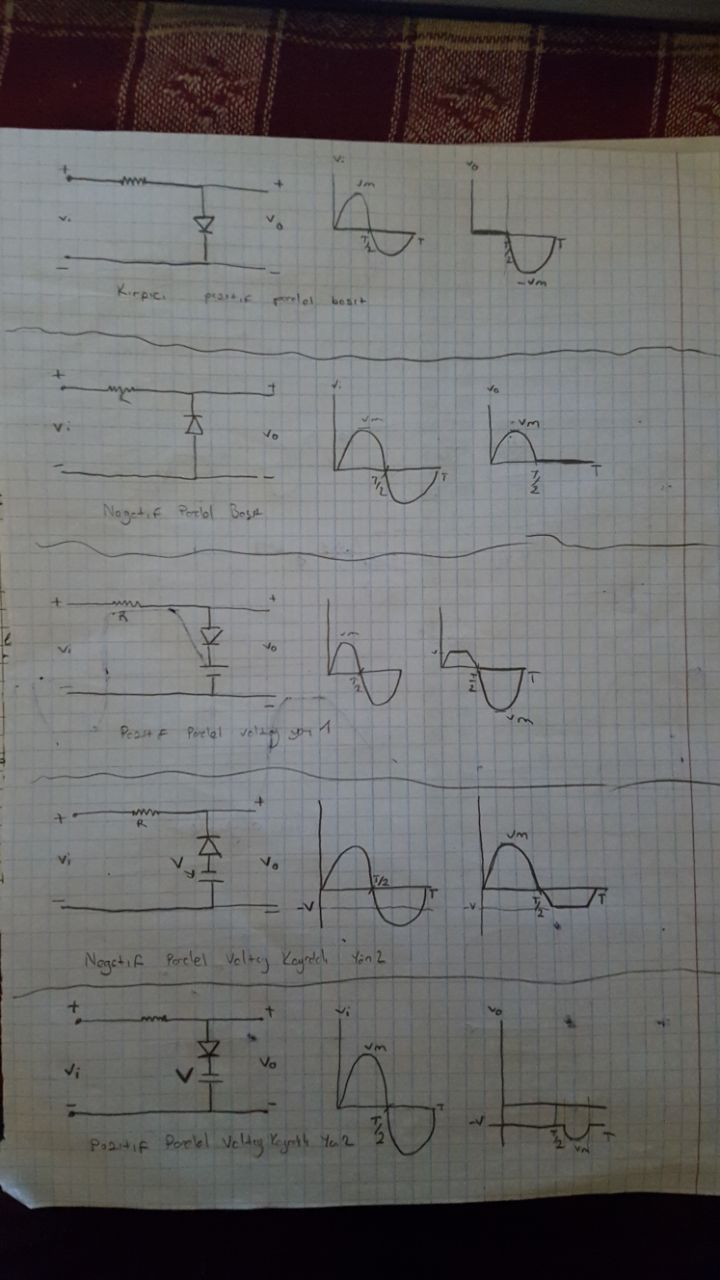 + + Vi Vo
Vi Vo Vm Vm
T/2 T T/2 T
- - -Vm
Kırpıcı pozitif paralel basit
+ + Vi Vo
Vm -Vm
Vi Vo
T/2 T T/2 T
- -
Negatif Parlel Basit
+ R +
Vi Vo Vm
T/2 T/2 T
- - Vm
Pozitif Parelel voltaj yön 1
+ R +
Vm
Vi V Vo T/2 T T/2 T
- - -V -V
Negatif Parelel Voltaj Kaynaklı Yön 2
+ + Vi Vo
Vm
Vi V Vo T/2 T -V T/2 Vm T
- -
Pozitif Parelel Voltaj Kaynaklı Yön 2